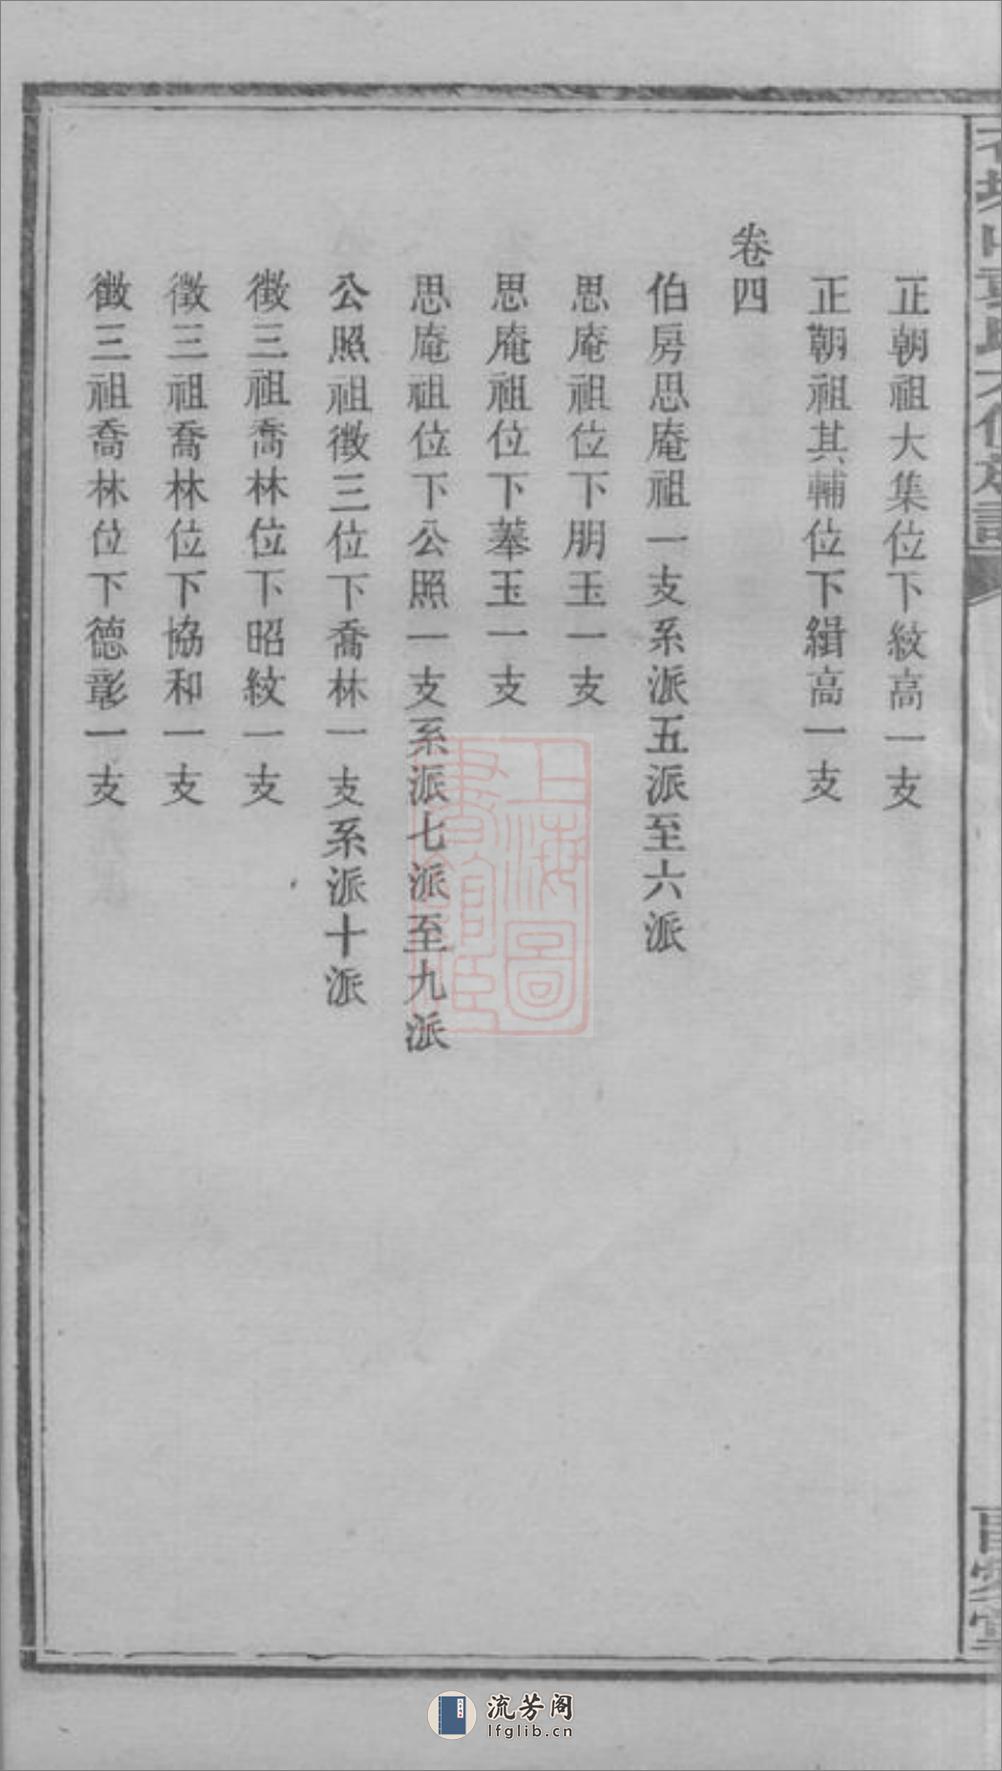 正朝祖大集位下紋高一支
正朝祖其輔位下緝高一支
卷四
伯房思庵祖一支系派五派至六派
思庵祖位下朋玉一支
思庵祖位下菶玉一支
思庵祖位下公照一支系派七派至九派
公照祖徵三位下喬林一支系派十派
徵三祖喬林位下昭紋一支
徵三祖喬林位下協和一支
徵三祖喬林位下德彰一支
上海圖
書館臧
流芳阁
lfglib.cn